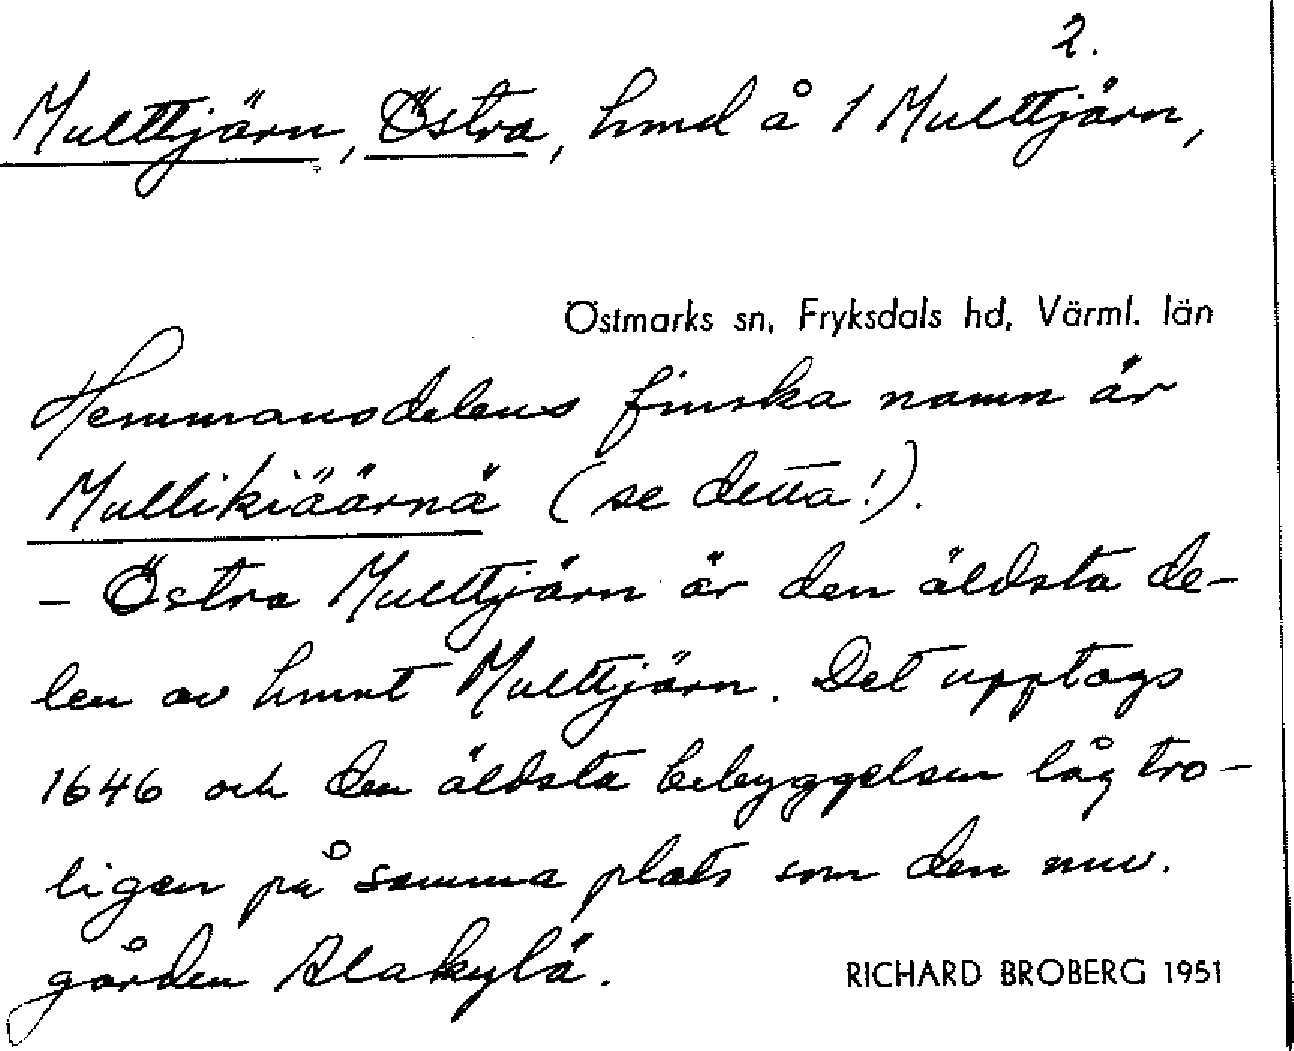 2.
Multtjärn, Östra, hmd å 1 Multtjärn,
Östmarks sn, Fryksdals hd, Värml. län
Hemmansdelens finska namn är
Mullikiäärnä (se detta!).
- Östra Multtjärn är den äldsta de-
len av hmnt Multtjärn. Det upptogs
1646 och den äldsta bebyggelsen låg tro-
ligen på samma plats som den nuv.
gården Alakylä.
RICHARD BROBERG 1951